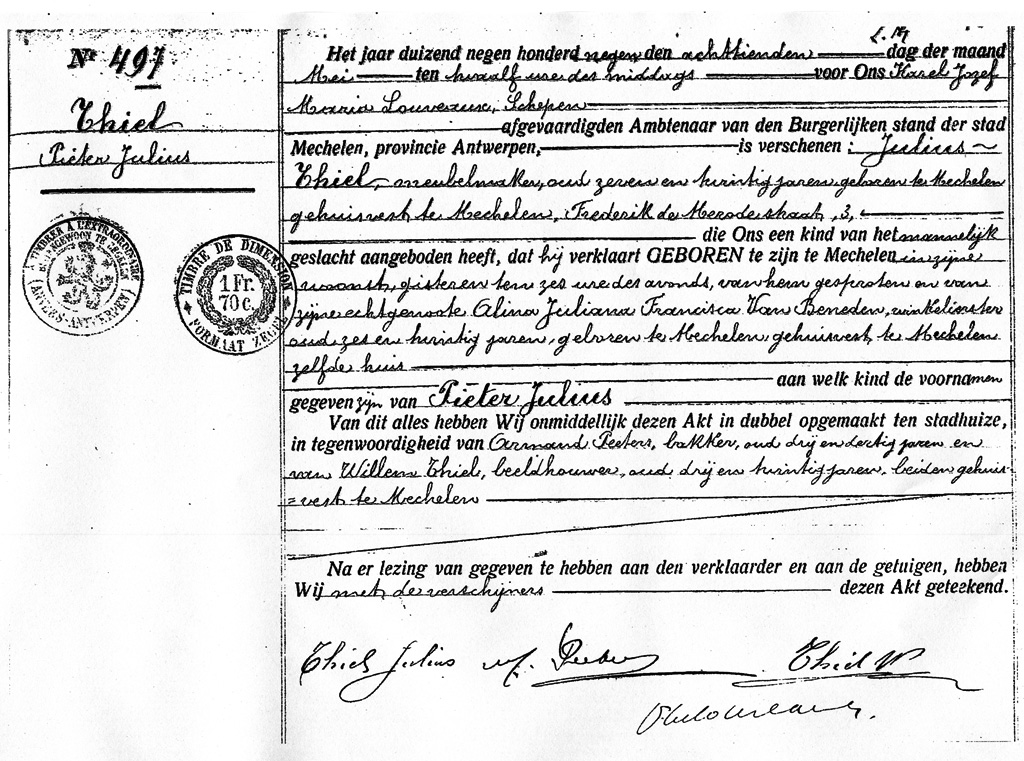 Nr 497
Thiel
Pieter Julius
TIMBRE DE DIMENSION
1 Fr.
70 c.
FORMAAT ZEGEL
Het jaar duizend negen honderd negen den achttienden dag der maand
Mei ten twaalf ure des middags voor Ons Karel Jozef
Maria Louveaux, Schepen
afgevaardigden Ambtenaar van den Burgerlijken stand der stad
Mechelen, provincie Antwerpen, is verschenen : Julius
Thiel, meubelmaker, oud zeven en twintig jaren, geboren te Mechelen
gehuisvest te Mechelen, Frederik de Merodestraat, 3,
die Ons een kind van het mannelijk
geslacht aangeboden heeft, dat hij verklaart GEBOREN te zijn te Mechelen in zijne
woonst, gisteren ten zes ure des avonds, van hem gesproten en van
zijne echtgenoote Alina Juliana Francisca Van Beneden, winkelierster
oud zes en twintig jaren, geboren te Mechelen gehuisvest te Mechelen
zelfde huis
aan welk kind de voornamen
gegeven zijn van Pieter Julius
Van dit alles hebben Wij onmiddellijk dezen Akt in dubbel opgemaakt ten stadhuize,
in tegenwoordigheid van Armand Peeters, bakker, oud drij en dertig jaren en
van Willem Thiel, beeldhouwer, oud drij en twintig jaren, beiden gehuis-
=vest te Mechelen
Na er lezing van gegeven te hebben aan den verklaarder en aan de getuigen, hebben
Wij met de verschijners dezen Akt geteekend.
Thiel Julius Peeters Thiel W